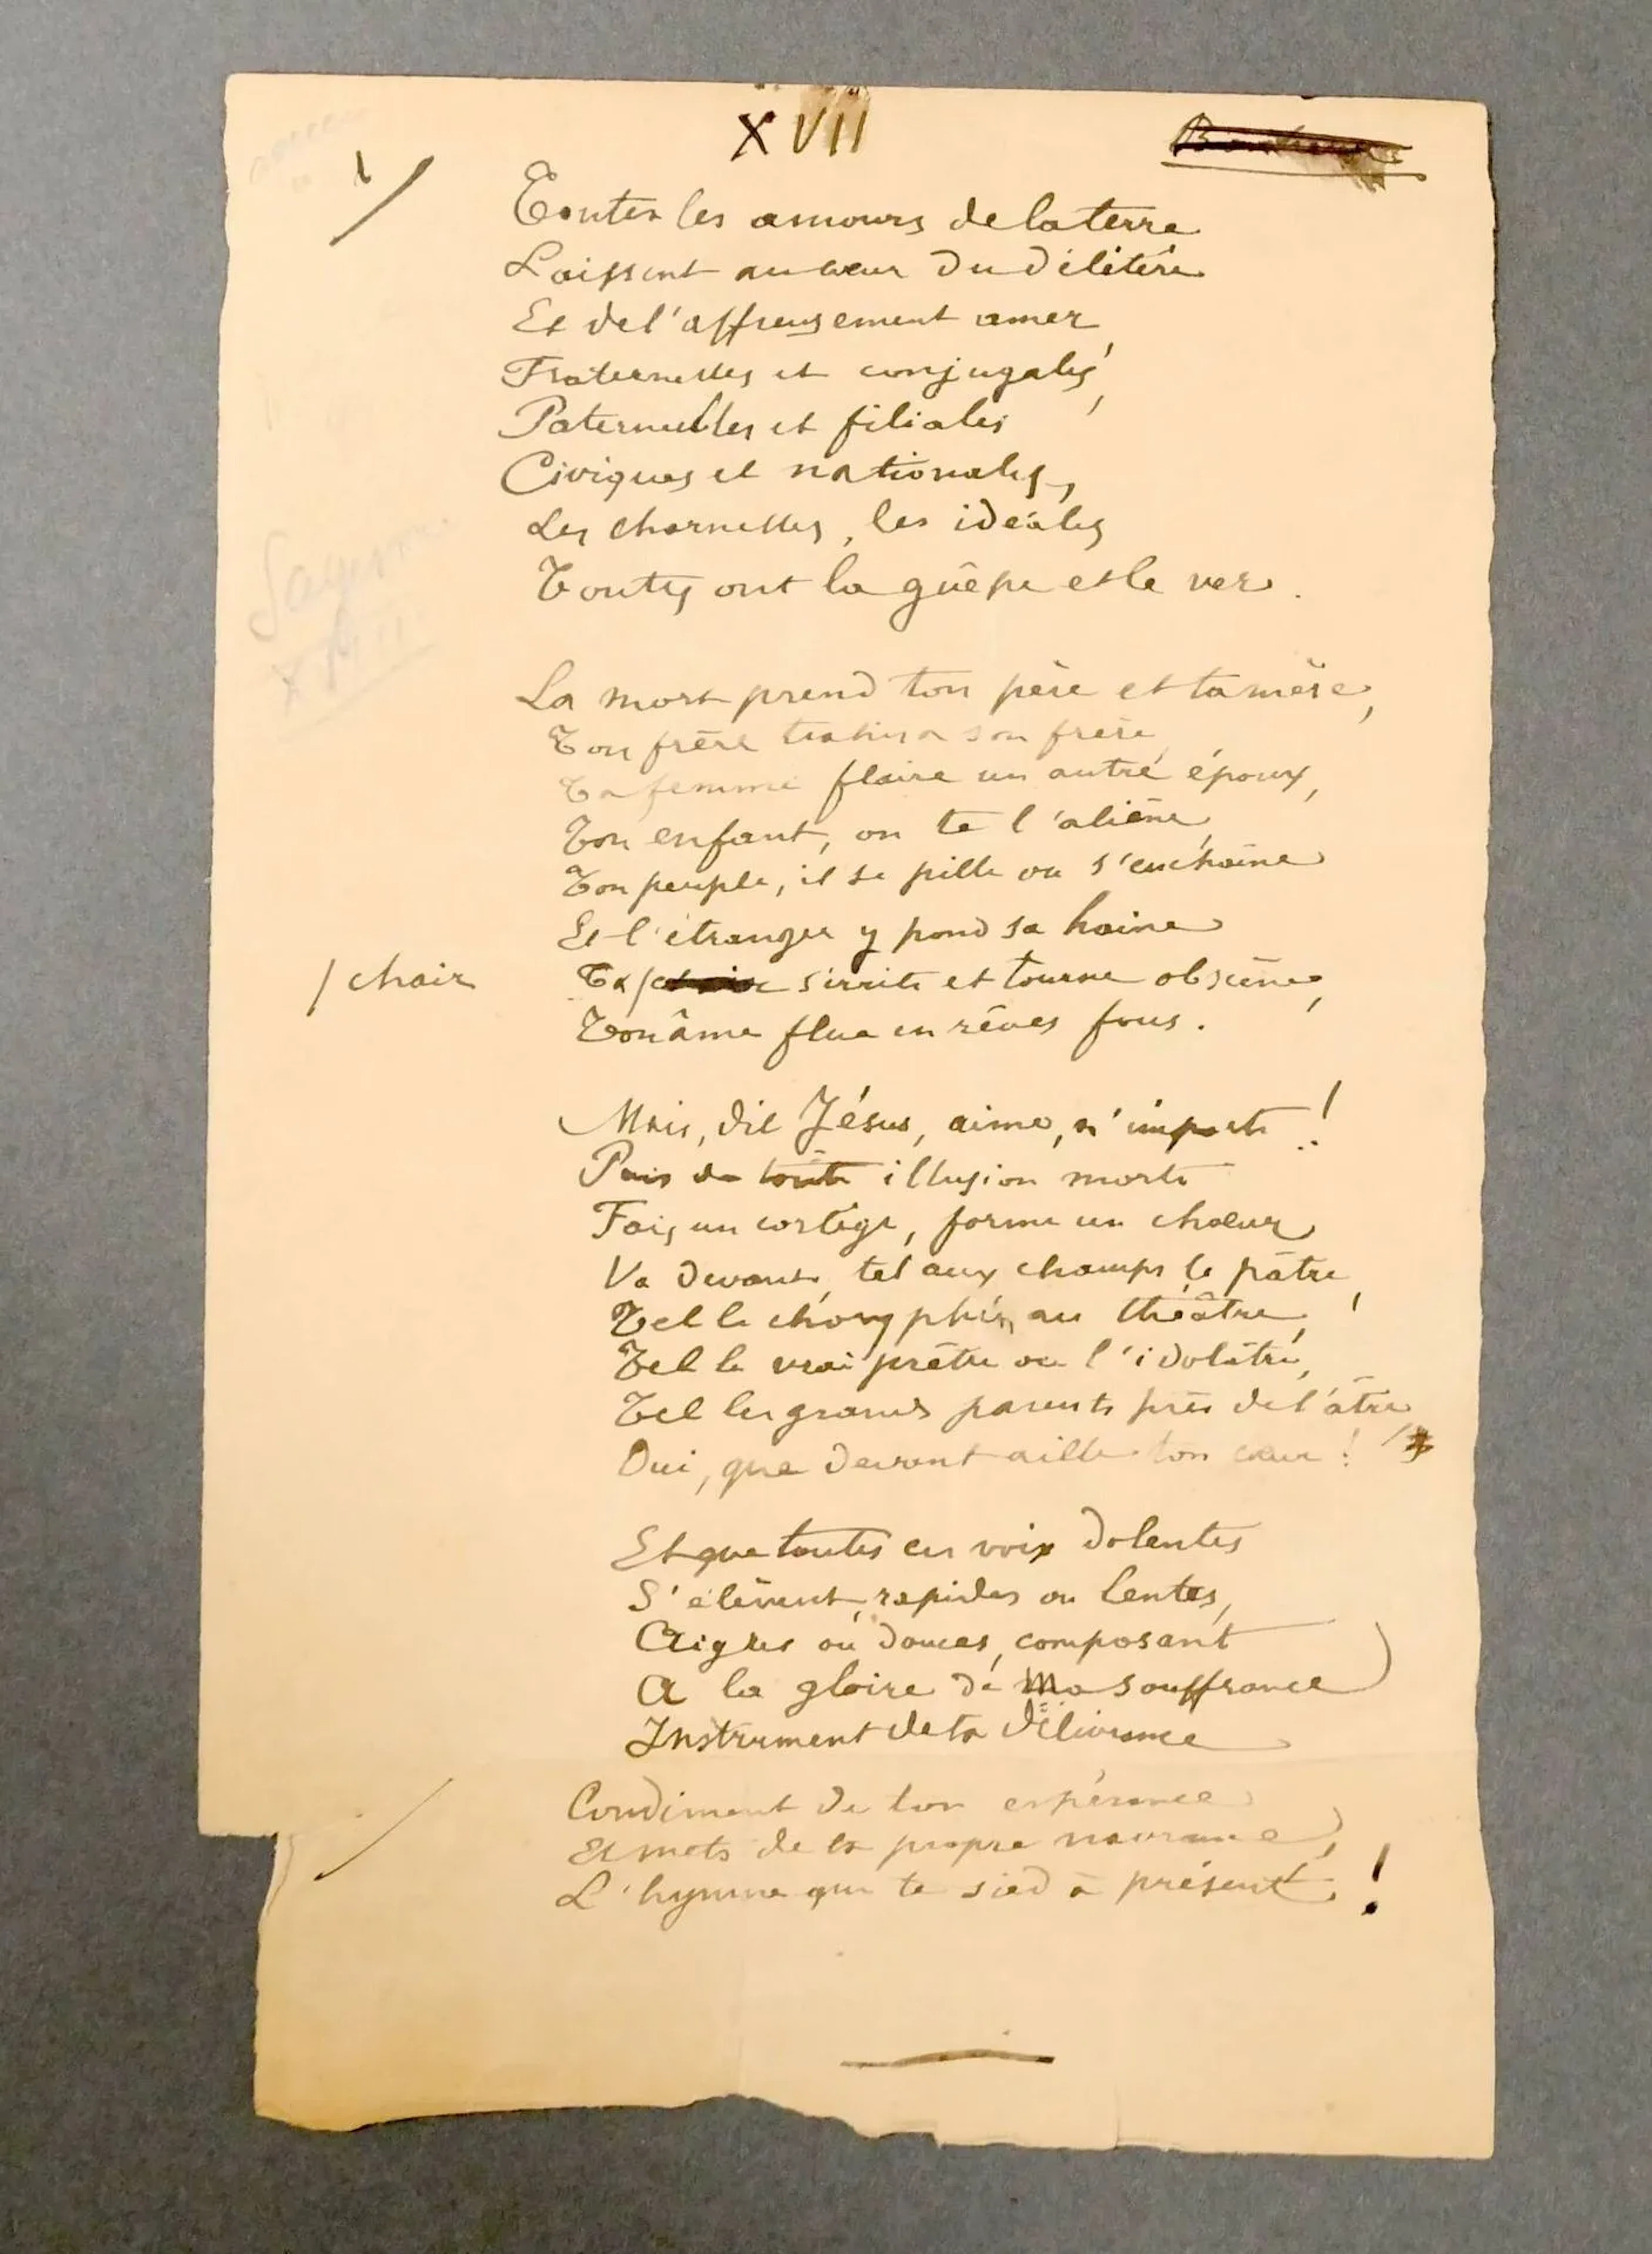 XVII
Bonheur
Toutes les amours de la terre
Laissent au cœur du délétère
Et de l'affreusement amer,
Fraternelles et conjugales,
Paternelles et filiales
Civiques et nationales,
Les charnelles, les idéales
Toutes ont la guêpe et le ver.
La mort prend ton père et ta mère,
Ton frère trahira son frère,
Ta femme flaire un autre époux,
Ton enfant, on te l'aliène,
Ton peuple, il se pille ou s'enchaîne
Et l'étranger y pond sa haine
/ chair
Ta / s'irrite et tourne obscène,
Ton âme flue en rêves fous.
Mais, dit Jésus, aime, n'importe !
Puis de toute illusion morte
Fais un cortège, forme un chœur
Va devant, tel aux champs le pâtre,
Tel le choryphée au théâtre,
Tel le vrai prêtre ou l'idolâtre,
Tel les grands parents près de l'âtre,
Oui, que devant aille ton cœur !
Et que toutes ces voix dolentes
S'élèvent rapides ou lentes,
Aigres ou douces, composant
A la gloire de Ma souffrance
Instrument de ta délivrance
Condiment de ton espérance
Et mets de ta propre navrance,
L'hymne qui te sied à présent !
Sagesse
XVII